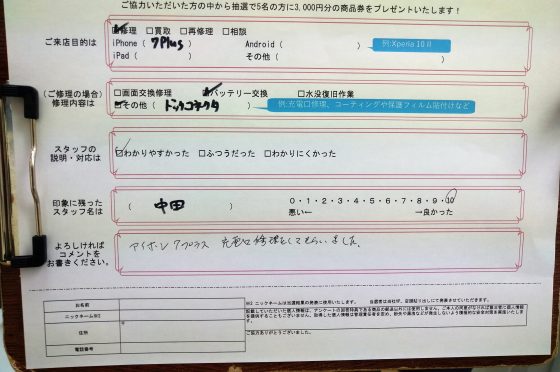 ご協力いただいた方の中から抽選で5名の方に3,000円分の商品券をプレゼントいたします！
ご来店目的は
☑修理 □買取 □再修理 □相談
iPhone（ 7Plus ） Android（ ） 例:Xperia 10Ⅱ
iPad（ ） その他（ ）
（ご修理の場合）
修理内容は
□画面交換修理 ☑バッテリー交換 □水没復旧作業
☑その他（ ドックコネクタ ） 例:充電口修理、コーティングや保護フィルム貼付けなど
スタッフの
説明・対応は
☑わかりやすかった □ふつうだった □わかりにくかった
印象に残った
スタッフ名は
（ 中田 ）
0・1・2・3・4・5・6・7・8・9・10
悪い← →良かった
よろしければ
コメントを
お書きください。
アイホン7プラス 充電口修理をしてもらいました。
お名前
ニックネーム※2
住所
〒
電話番号
※2 ニックネームは当選結果の発表に使用いたします。
ご協力ありがとうございました。